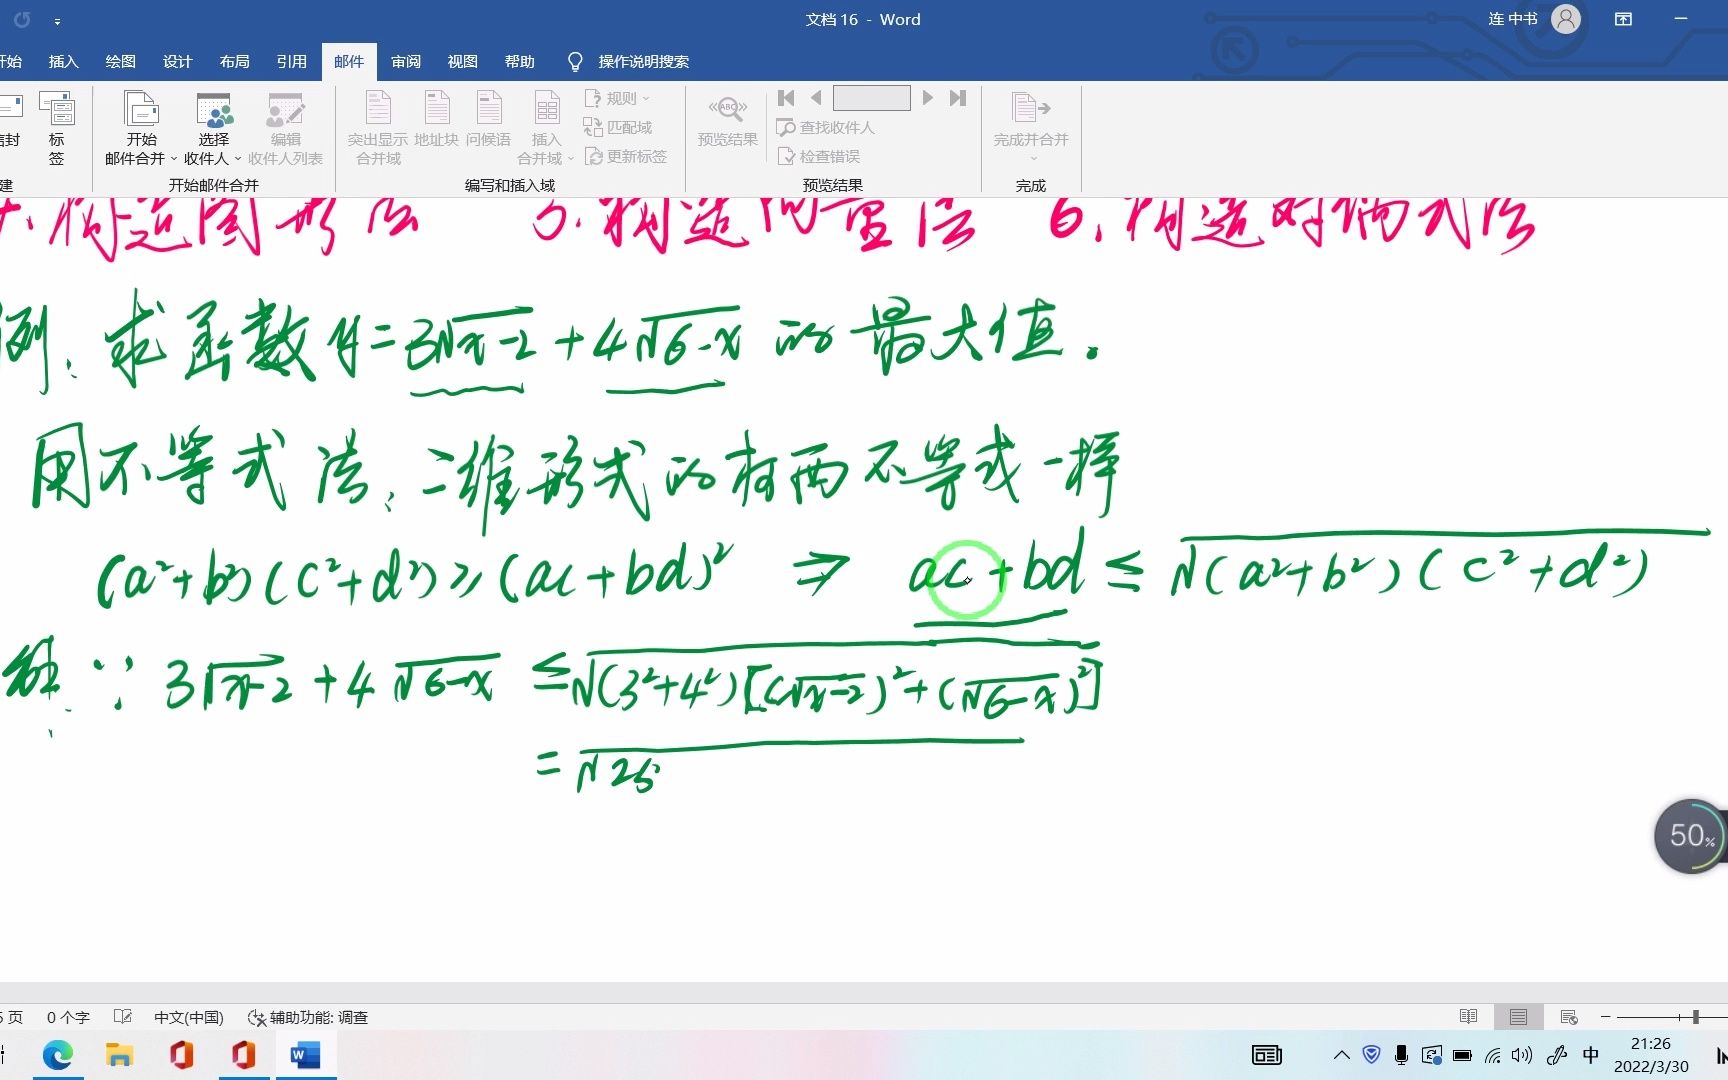 文档 16 - Word
连 中书
开始 插入 绘图 设计 布局 引用 邮件 审阅 视图 帮助 操作说明搜索
信封 标签
开始邮件合并 选择收件人 编辑收件人列表
突出显示合并域 地址块 问候语 插入合并域
规则
匹配域
更新标签
预览结果
查找收件人
检查错误
完成并合并
建 开始邮件合并 编写和插入域 预览结果 完成
构造图形法 5.构造向量法 6.构造对偶式法
例.求函数 y=3√x-2+4√6-x 的最大值.
用不等式法.二维形式的柯西不等式一样
(a²+b²)(c²+d²)≥(ac+bd)² ⇒ ac+bd≤√(a²+b²)(c²+d²)
解:∵ 3√x-2+4√6-x ≤√(3²+4²)[(√x-2)²+(√6-x)²]
=√25
50%
页 0 个字 中文(中国) 辅助功能: 调查
中 21:26
2022/3/30